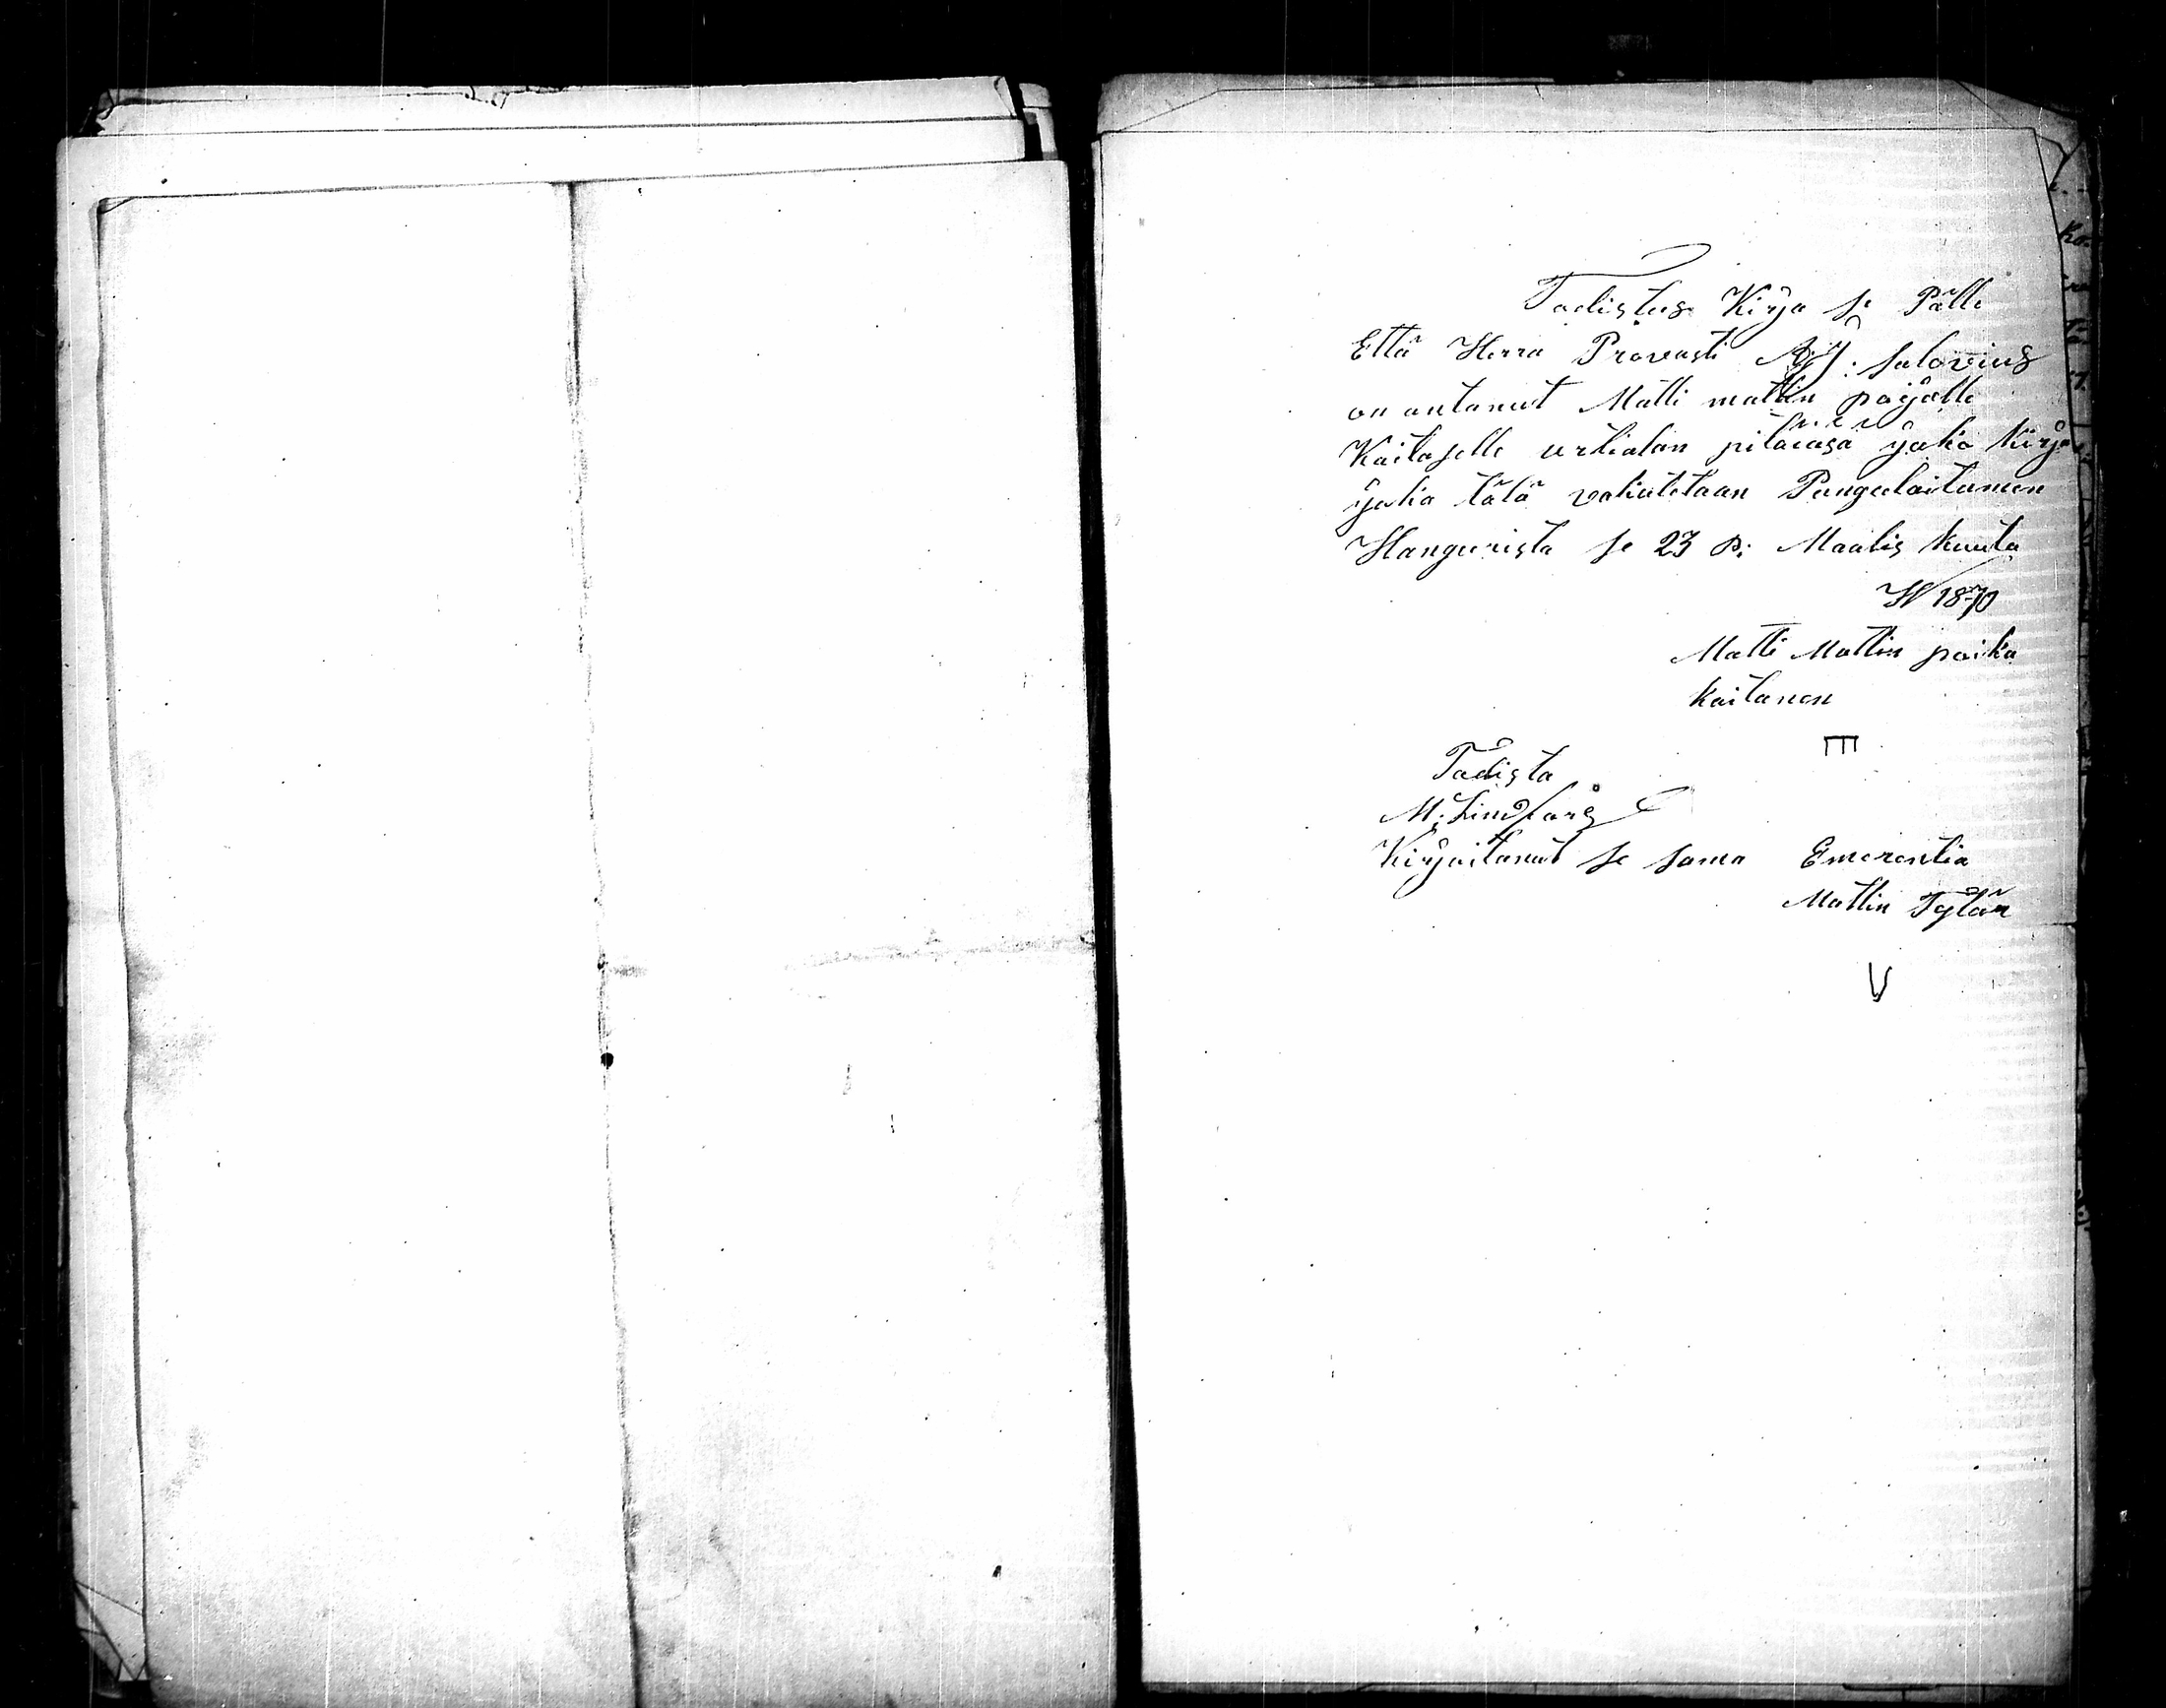 Todistus Kirja se Pälle
Että Herra Provasti A J: Salovius
on antanut Matti mattin pojalle
Kaitaselle urtialan pitäiäsä joka kirja
joka tälä vakutetaan Pungulaitumen
Hangurista se 23 P: Maalis kuuta
W 1870
Matti Mattin poika
kaitanen
Todista
M: Lindfors
Kirjoitanut se sama Emerentia
Mattin Tytär